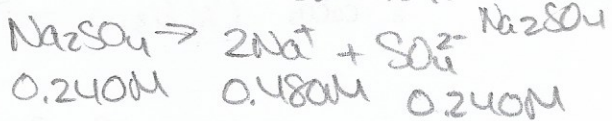 Na₂SO₄ → 2Na⁺ + SO₄²⁻ Na₂SO₄
0.240M 0.480M 0.240M